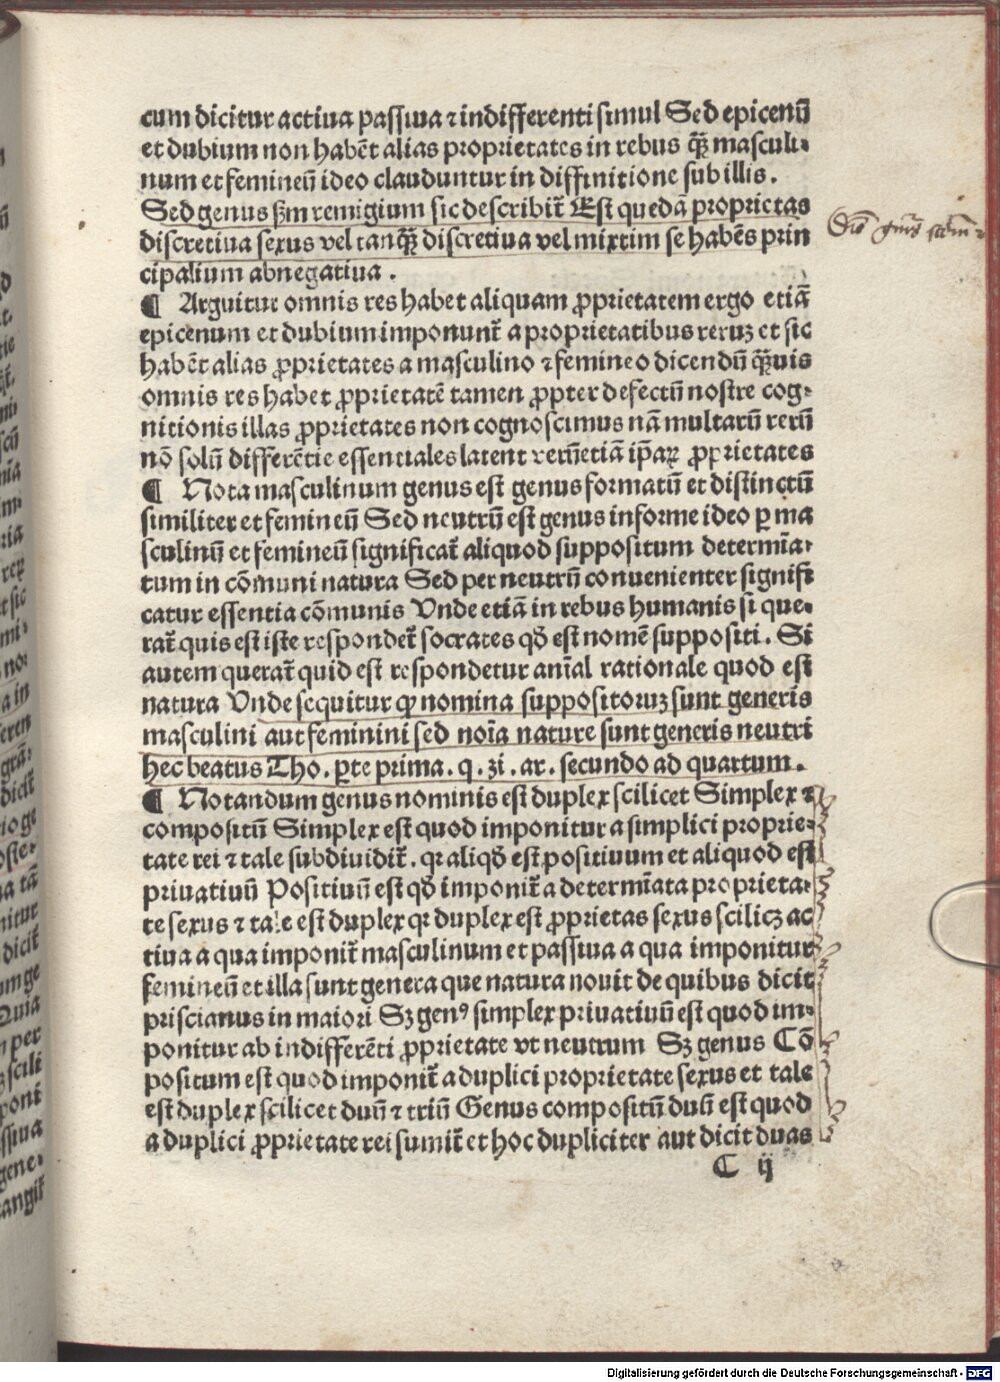 cum dicitur actiua passiua ⁊ indifferenti simul Sed epicenū
et dubium non habēt alias proprietates in rebus qꝫ̄ masculi⸗
num et femineū ideo clauduntur in diffinitione sub illis.
Sed genus ẜm remigium sic describit̄ Est quedā proprietas
discretiua sexus vel tanqꝫ̄ discretiua vel mixtim se habēs prin
cipalium abnegatiua.
¶ Arguitur omnis res habet aliquam ꝓprietatem ergo etiā
epicenum et dubium imponunt̄ a proprietatibus reruꝫ et sic
habēt alias ꝓprietates a masculino ⁊ femineo dicendū qꝫ̄uis
omnis res habet ꝓprietatē tamen ꝓpter defectū nostre cog⸗
nitionis illas ꝓprietates non cognoscimus nā multarū rerū
nō solū differētie essentiales latent verūetiā ip̄aꝝ ꝓprietates
¶ Nota masculinum genus est genus formatū et distinctū
similiter et femineū Sed neutrū est genus informe ideo ꝑ ma
sculinū et femineū significat̄ aliquod suppositum determīa⸗
tum in cōmuni natura Sed per neutrū conuenienter signifi
catur essentia cōmunis Vnde etiā in rebus humanis si que⸗
rat̄ quis est iste respondet̄ socrates qđ est nomē suppositi. Si
autem querat̄ quid est respondetur anīal rationale quod est
natura Vnde sequitur ꝙ nomina suppositoruꝫ sunt generis
masculini aut feminini sed noīa nature sunt generis neutri
hec beatus Tho. ꝑte prima. q. ꝫi. ar. secundo ad quartum.
¶ Notandum genus nominis est duplex scilicet Simplex ⁊
compositū Simplex est quod imponitur a simplici proprie⸗
tate rei ⁊ tale subdiuidit̄. qꝛ aliqđ est positiuum et aliquod est
priuatiuū Positiuū est qđ imponit̄ a determīata proprieta⸗
te sexus ⁊ tale est duplex qꝛ duplex est ꝓprietas sexus scilicꝫ ac
tiua a qua imponit̄ masculinum et passiua a qua imponitur
femineū et illa sunt genera que natura nouit de quibus dicit
priscianus in maiori Sꝫ genꝰ simplex priuatiuū est quod im⸗
ponitur ab indifferēti ꝓprietate vt neutrum Sꝫ genus Cō
positum est quod imponit̄ a duplici proprietate sexus et tale
est duplex scilicet duū ⁊ triū Genus compositū duū est quod
a duplici ꝓprietate rei sumit̄ et hoc dupliciter aut dicit duas
C ij
Digitalisierung gefördert durch die Deutsche Forschungsgemeinschaft - DFG